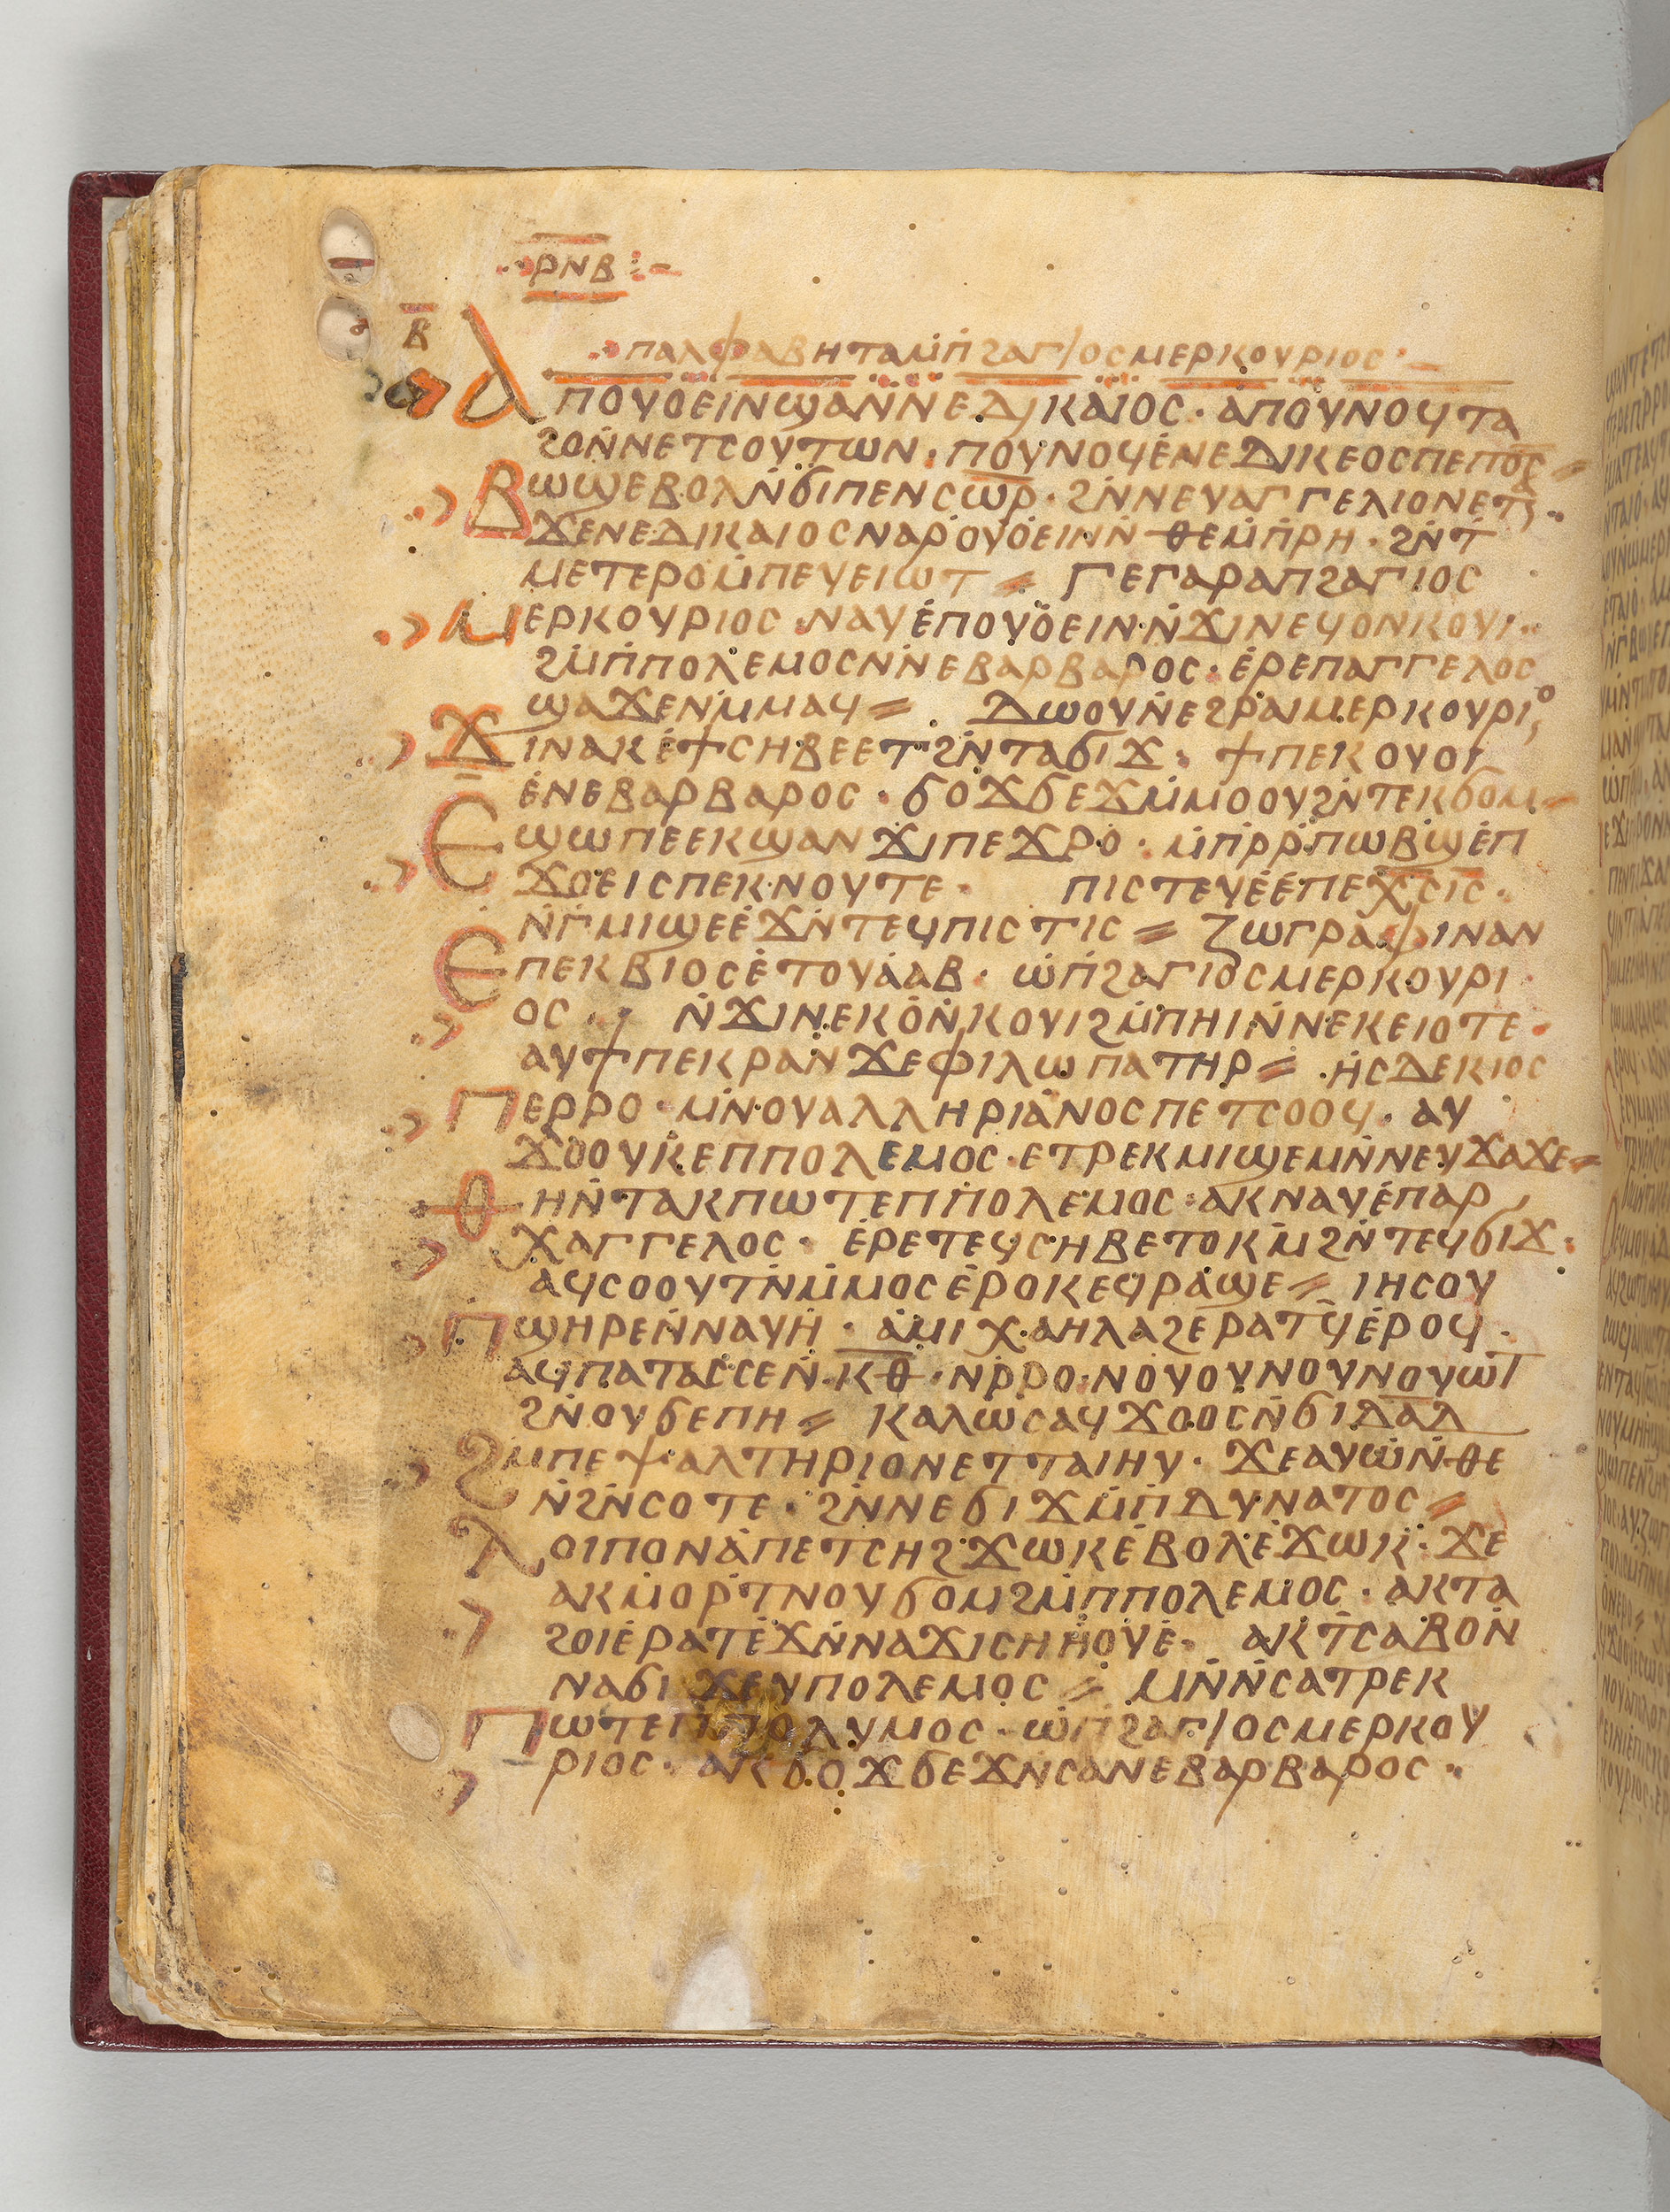 ⲣⲛⲃ
ⲃ̄
ⲡⲁⲗⲫⲁⲃⲏⲧⲁⲙ̇ⲡϩⲁⲅⲓⲟⲥⲙⲉⲣⲕⲟⲩⲣⲓⲟⲥ
ⲁⲡⲟⲩⲟⲉⲓⲛϣⲁⲛⲛⲉⲇⲓⲕⲁⲓⲟⲥ · ⲁⲡⲟⲩⲛⲟϥⲧⲁ
ϩⲟⲛ̇ⲛⲉⲧⲥⲟⲩⲧⲱⲛ · ⲡⲟⲩⲛⲟϥⲉ̇ⲛⲉⲇⲓⲕⲉⲟⲥⲡⲉⲡⲟ̅ⲥ̅ ⸗
ⲃⲱϣⲉⲃⲟⲗⲛ̇ϭⲓⲡⲉⲛⲥ̅ⲱ̅ⲣ̅ · ϩⲛ̇ⲛⲉⲩⲁⲅⲅⲉⲗⲓⲟⲛⲉⲧ
ϫⲉⲛⲉⲇⲓⲕⲁⲓⲟⲥⲛⲁⲣ̇ⲟⲩⲟ̇ⲉⲓⲛⲛ̇ⲑⲉⲙ̇ⲡ̇ⲣⲏ · ϩⲛ̇ⲧ̇
ⲙⲉⲧⲉⲣⲟⲙ̇ⲡⲉϥⲉⲓⲱⲧ ⸗ ⲅⲉⲅⲁⲣⲁⲡϩⲁⲅⲓⲟⲥ
ⲙⲉⲣⲕⲟⲩⲣⲓⲟⲥ · ⲛⲁⲩⲉ̇ⲡⲟⲩⲟ̇ⲉⲓⲛ·ⲛ̇ϫⲓⲛⲉϥⲟⲛⲕⲟⲩⲓ
ϩⲙ̇ⲡ̇ⲡⲟⲗⲉⲙⲟⲥⲛ̇ⲛⲉⲃⲁⲣⲃⲁⲣⲟⲥ · ⲉ̇ⲣⲉⲡⲁⲅⲅⲉⲗⲟⲥ
ϣⲁϫⲉⲛⲙ̇ⲙⲁϥ ⸗ ⲇⲱⲟⲩⲛ̇ⲉϩⲣⲁⲓⲙⲉⲣⲕⲟⲩⲣⲓⲟⲥ
ϫⲓⲛⲁⲕⲉ̇ϯⲥⲏⲃⲉⲉⲧϩⲛ̇ⲧⲁϭⲓϫ · ϯⲡⲉⲕⲟⲩⲟⲓ
ⲉ̇ⲛⲉⲃⲁⲣⲃⲁⲣⲟⲥ · ϭⲟϫϭⲉϫⲙ̇ⲙⲟⲟⲩϩⲛ̇ⲧⲉⲕϭⲟⲙ ⸗
ⲉϣⲱⲡⲉⲉⲕϣⲁⲛϫⲓⲡⲉϫⲣⲟ · ⲙ̇ⲡ̇ⲣ̇ⲣ̇ⲡⲱⲃϣⲉ̇ⲡ
ϫⲟⲉⲓⲥⲡⲉⲕⲛⲟⲩⲧⲉ · ⲡⲓⲥⲧⲉⲩⲉ̇ⲉ̇ⲡⲉⲭ̅ⲥ̅ⲓ̅ⲥ̅ ·
ⲛ̇ⲅ̇ⲙⲓϣⲉⲉ̇ϫⲛ̇ⲧⲉϥⲡⲓⲥⲧⲓⲥ ⸗ ⲍⲱⲅⲣⲁⲫⲓⲛⲁⲛ
ⲉⲡⲉⲕⲃⲓⲟⲥⲉ̇ⲧⲟⲩⲁ̇ⲁⲃ · ⲱ̇ⲡ̇ϩⲁⲅⲓⲟⲥⲙⲉⲣⲕⲟⲩⲣⲓ
ⲟⲥ · ⲛ̇ϫⲓⲛⲉⲕⲟ̇ⲛ̇ⲕⲟⲩⲓϩⲙ̇ⲡⲏⲓⲛ̇ⲛⲉⲕⲉⲓⲟⲧⲉ ·
ⲁⲩϯⲡⲉⲕⲣⲁⲛ̇ϫⲉⲫⲓⲗⲱⲡⲁⲧⲏⲣ ⸗ ⲏ̇ⲥⲇⲉⲕⲓⲟⲥ
ⲡⲉⲣⲣⲟ · ⲙⲛ̇ⲟⲩⲁⲗⲗⲏⲣⲓⲁ̇ⲛⲟⲥⲡⲉⲧⲥⲟⲟϥ · ⲁⲩ
ϫⲟⲟⲩⲕ̇ⲉⲡⲡⲟⲗⲉⲙⲟⲥ · ⲉⲧⲣⲉⲕⲙⲓϣⲉⲙⲛ̇ⲛⲉⲩϫⲁϫⲉ ⸗
ⲑⲏⲛ̇ⲧⲁⲕⲡⲱⲧⲉⲡ̇ⲡⲟⲗⲉⲙⲟⲥ · ⲁⲕⲛⲁⲩⲉ̇ⲡⲁⲣ
ⲭⲁⲅⲅⲉⲗⲟⲥ · ⲉ̇ⲣⲉⲧⲉϥⲥⲏⲃⲉⲧⲟⲕⲙ̇ϩⲛ̇ⲧⲉϥϭⲓϫ ·
ⲁϥⲥⲟⲟⲩⲧⲛ̇ⲙ̇ⲙⲟⲥⲉ̇ⲣⲟⲕⲉϥⲣⲁϣⲉ ⸗ ⲓⲏⲥⲟⲩ
ⲡϣⲏⲣⲉⲛ̇ⲛⲁⲩⲏ̇ · ⲁ̇ⲙⲓⲭⲁⲏⲗⲁϩⲉⲣⲁⲧϥ̇ⲉ̇ⲣⲟϥ ·
ⲁϥⲡⲁⲧⲁⲥⲥⲉⲛ̇·ⲕ̅ⲑ̅·ⲛ̇ⲣ̇ⲣⲟ·ⲛⲟ̇ⲩⲟⲩⲛⲟⲩⲛⲟⲩⲱⲧ
ϩⲛ̇ⲟⲩϭⲉⲡⲏ ⸗ ⲕⲁⲗⲱⲥⲁϥϫⲟⲟⲥⲛ̇ϭⲓⲇ̅ⲁ̅ⲇ̅
ϩⲙⲡⲉⲯⲁⲗⲧⲏⲣⲓⲟⲛⲉⲧⲧⲁⲓⲏⲩ · ϫⲉⲁⲩⲱ̇ⲛ̇ⲑⲉ
ⲛ̇ϩⲛ̇ⲥⲟⲧⲉ · ϩⲛ̇ⲛⲉϭⲓϫⲙ̇ⲡ̇ⲇⲩⲛⲁⲧⲟⲥ ⸗
ⲗⲟⲓⲡⲟⲛⲁ̇ⲡⲉⲧⲥⲏϩϫⲱⲕⲉ̇ⲃⲟⲗⲉ̇ϫⲱⲕ · ϫⲉ
ⲁⲕⲙⲟⲣ̇ⲧ̇ⲛⲟⲩϭⲟⲙϩⲙ̇ⲡⲡⲟⲗⲉⲙⲟⲥ · ⲁⲕⲧⲁ
ϩⲟⲓⲉ̇ⲣⲁⲧⲉ̇ϫⲛ̇ⲛⲁϫⲓⲥⲏⲏ̇ⲟⲩⲉ̇ · ⲁⲕⲧ̇ⲥⲁⲃⲟⲛ̇
ⲛⲁϭⲓϫⲉⲩⲡⲟⲗⲉⲙⲟⲥ ⸗ ⲙⲛ̇ⲛ̇ⲥⲁⲧⲣⲉⲕ
ⲡⲱⲧⲉⲡ̇ⲡⲟⲗⲩⲙⲟⲥ · ⲱ̇ⲡ̇ϩⲁⲅⲓⲟⲥⲙⲉⲣⲕⲟⲩ
ⲣⲓⲟⲥ · ⲁⲕϭⲟϫϭⲉϫⲛ̇ⲥⲁⲛⲉⲃⲁⲣⲃⲁⲣⲟⲥ ·